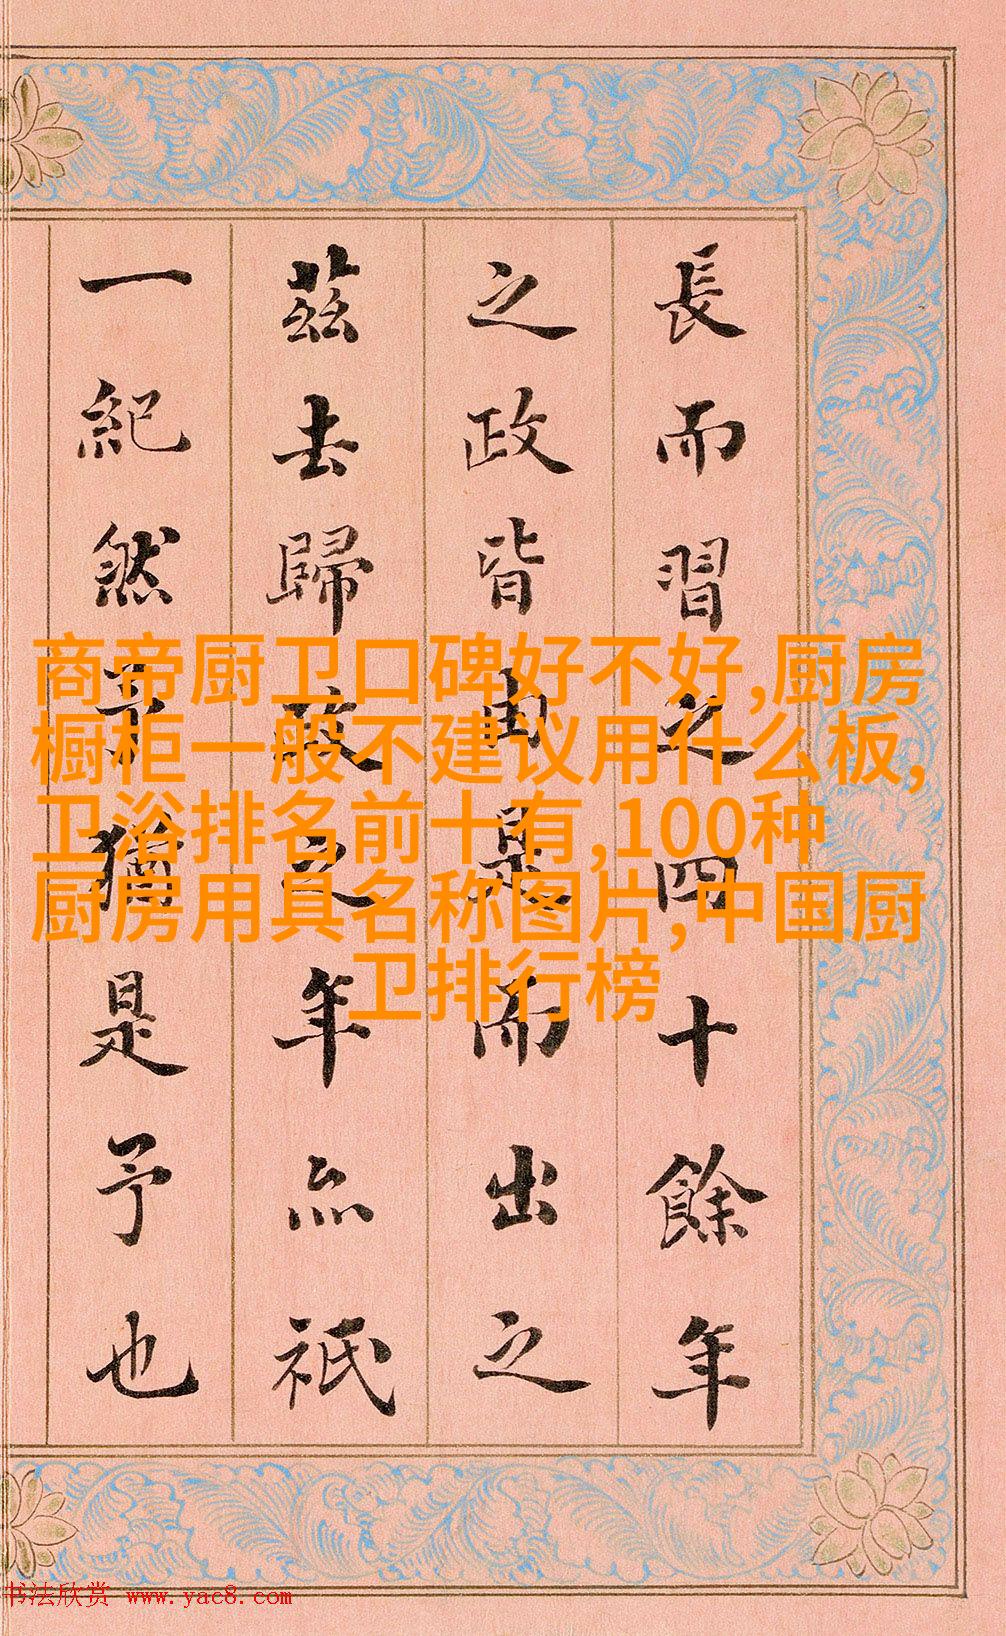 長而習之四十餘年
之政皆由是而出之
茲去歸政之年亦祇
一紀然猶是予也
商帝厨卫口碑好不好,厨房
橱柜一般不建议用什么板,
卫浴排名前十有,100种
厨房用具名称图片,中国厨
卫排行榜
书法欣赏 www.yac8.com